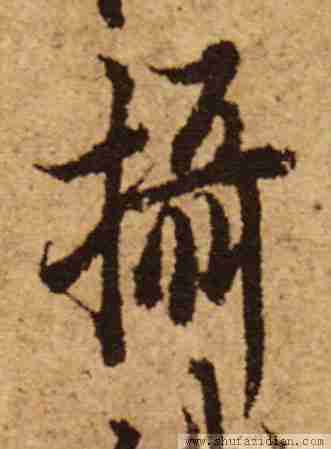 攝
www.shufazidian.com